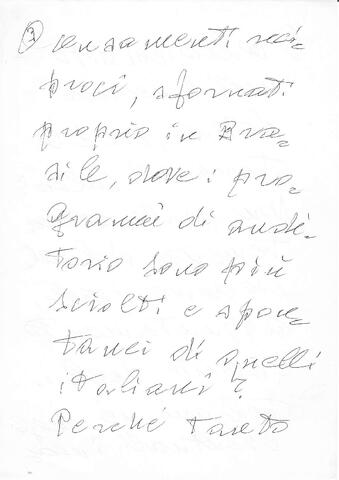 3 censamenti reci=
proci, sfornati
proprio in Bra=
sile, dove i pro=
grammi di audi=
torio sono più
sciolti e spon=
tanei di quelli
italiani?
Perché tanto